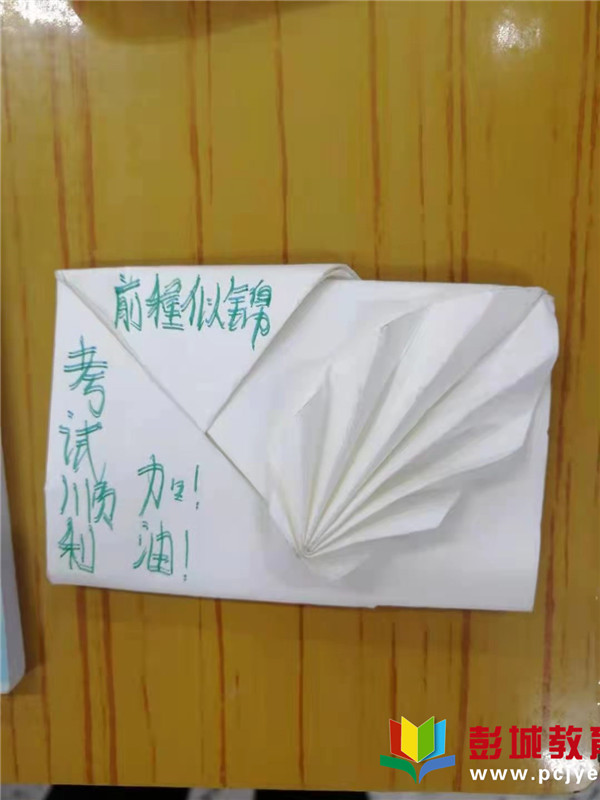 前程似锦
考试顺利
加油!!
彭城教育
www.pcjye